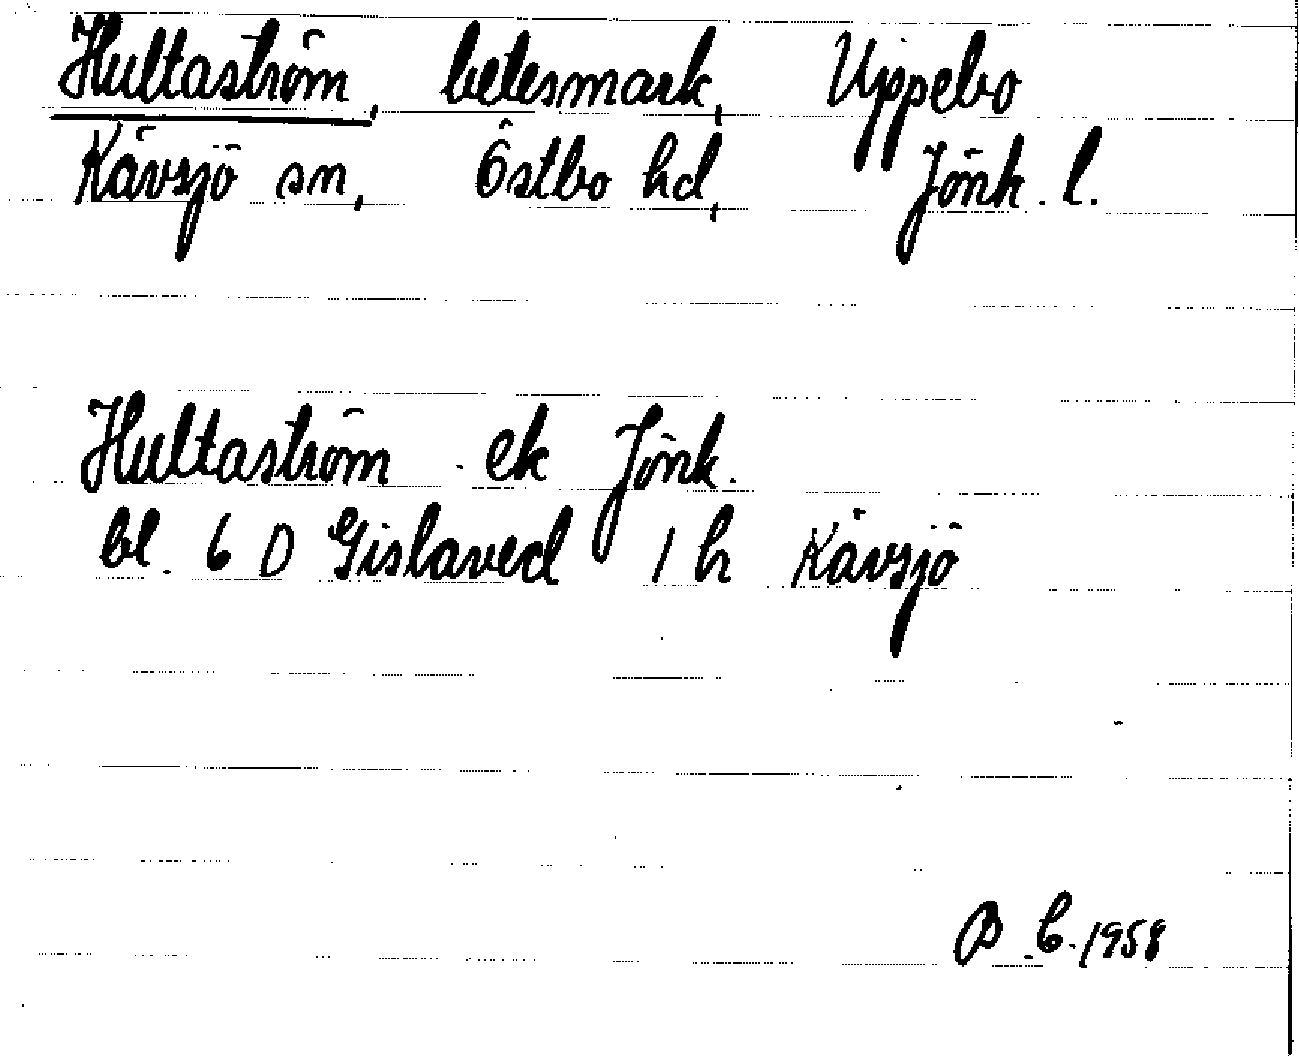 Hultaström, betesmark, Uppebo
Kävsjö sn, Östbo hd, Jönk. l.
Hultaström ek Jönk.
bl. 6 D Gislaved 1 h Kävsjö
B. C. 1958